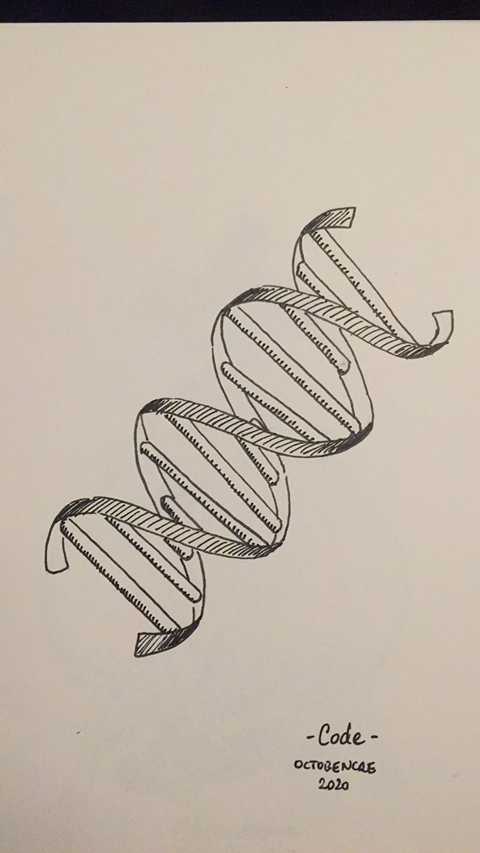 -Code-
OCTOBENCRE
2020